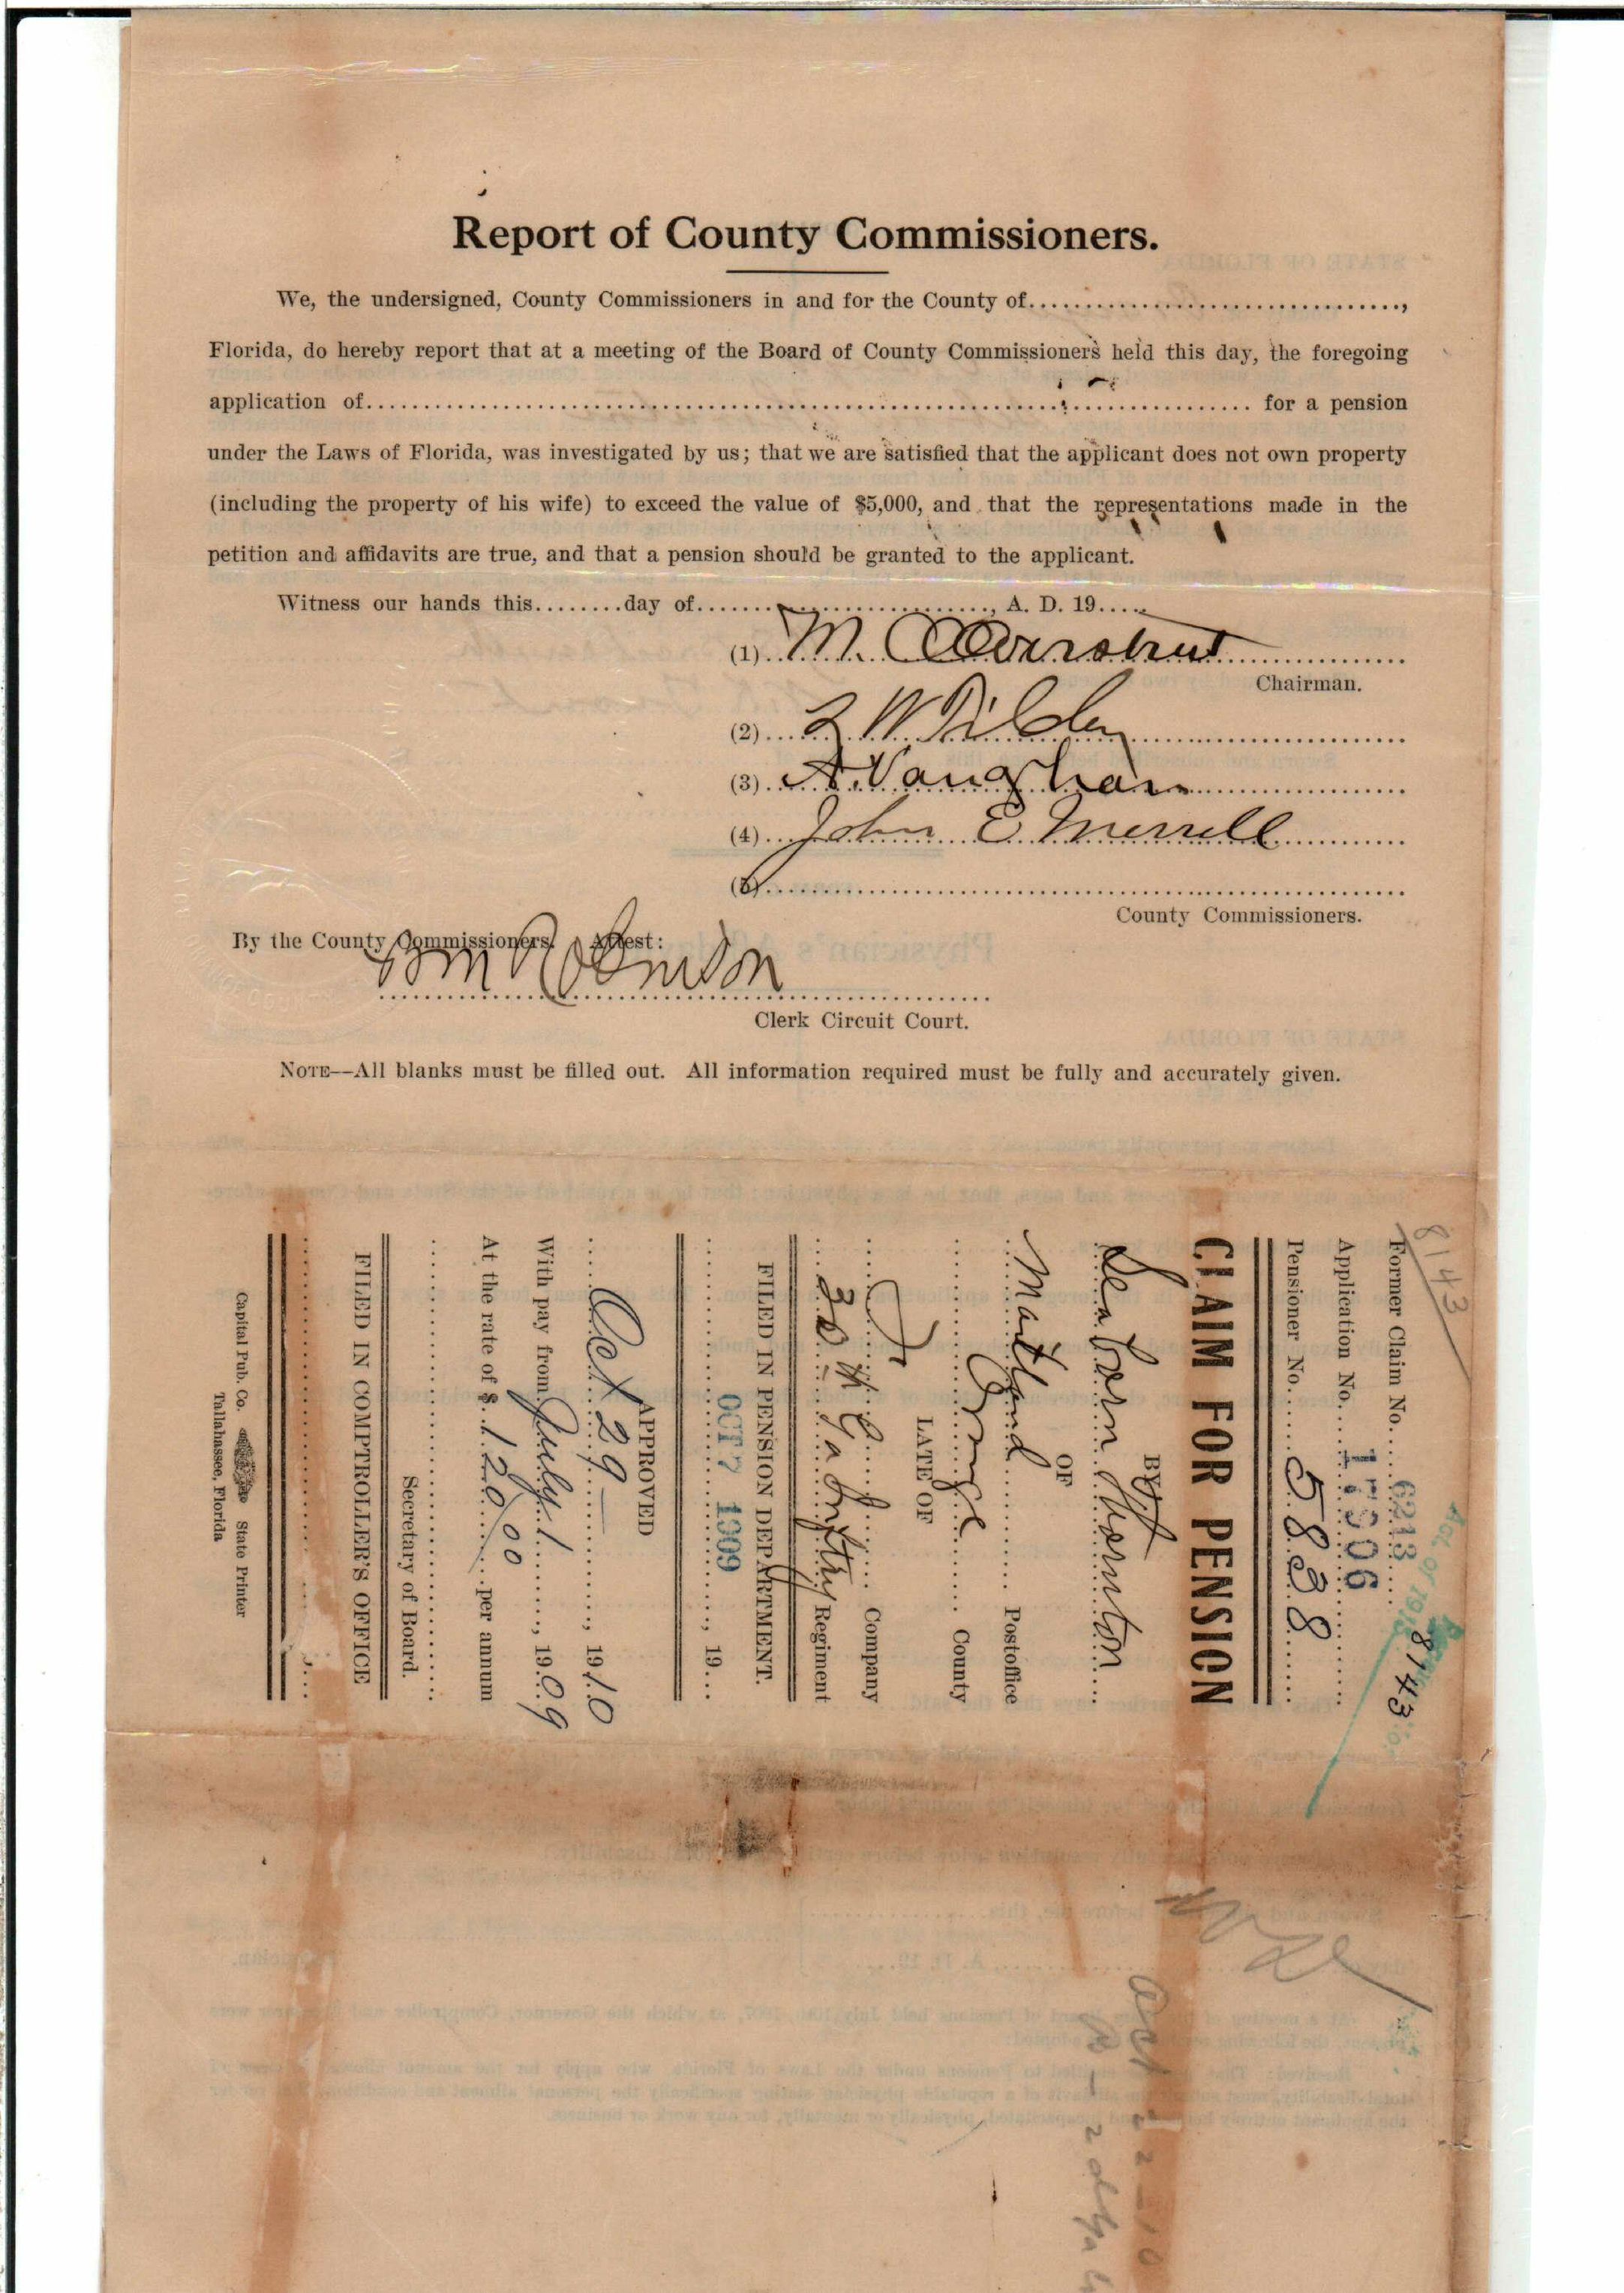 Report of County Commissioners.
We, the undersigned, County Commissioners in and for the County of........................................,
Florida, do hereby report that at a meeting of the Board of County Commissioners held this day, the foregoing
application of........................................ for a pension
under the Laws of Florida, was investigated by us; that we are satisfied that the applicant does not own property
(including the property of his wife) to exceed the value of $5,000, and that the representations made in the
petition and affidavits are true, and that a pension should be granted to the applicant.
Witness our hands this........day of........................, A. D. 19.....
(1) M. O Overstreet
Chairman.
(2) L W Tilden
(3) A. Vaughan
(4) John E Merrell
(5)
County Commissioners.
By the County Commissioners. Attest:
B M Robinson
Clerk Circuit Court.
NOTE—All blanks must be filled out. All information required must be fully and accurately given.
8143
Act of 1913
Former Claim No. 6213 8143
Application No. 17506
Pensioner No. 5838
CLAIM FOR PENSION
BY
Seaborn Thornton
OF
Maitland Postoffice
Orange County
LATE OF
Company
30 Regiment
FILED IN PENSION DEPARTMENT.
OCT 7 1909, 19....
APPROVED
Oct 29, 1910
With pay from July 1, 1909
At the rate of $ 120/00 per annum
Secretary of Board.
FILED IN COMPTROLLER'S OFFICE
Capital Pub. Co. State Printer
Tallahassee, Florida
Oct 22-10